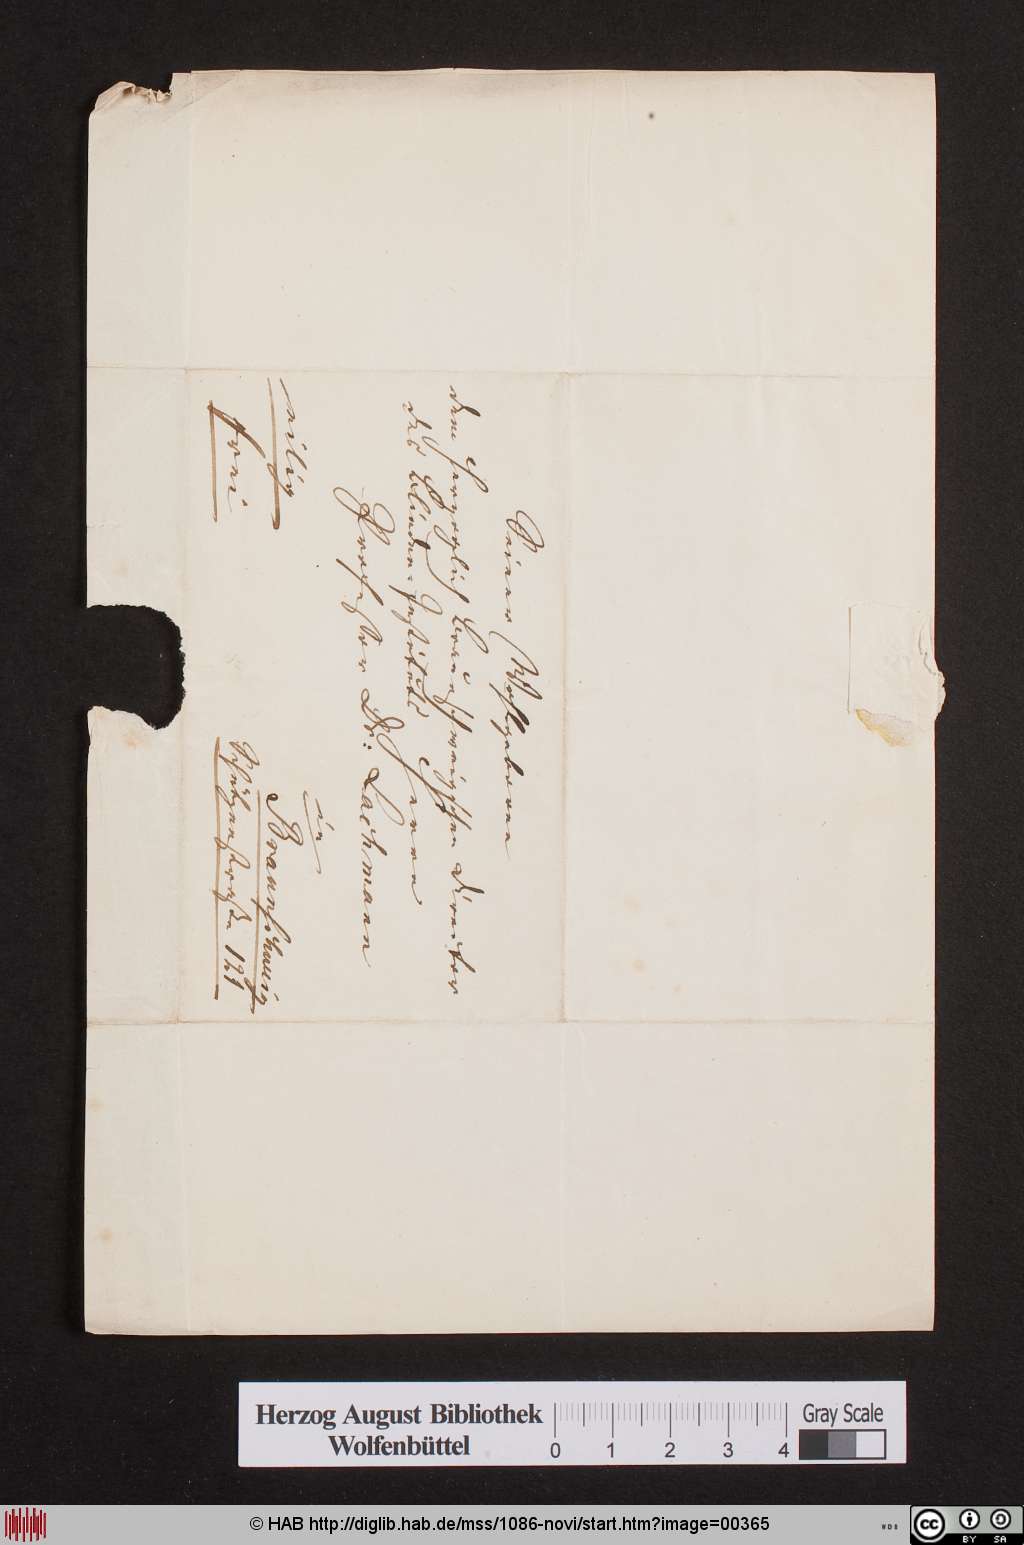 Seiner Wohlgeboren
dem Herzoglich Braunschweigschen Director
des Blinden-Instituts Herrn
Professor Dr: Lachmann
in
Braunschweig
eilig
frei
Herzog August Bibliothek
Wolfenbüttel
0 1 2 3 4
Gray Scale
© HAB http://diglib.hab.de/mss/1086-novi/start.htm?image=00365
WDB
cc
BY SA